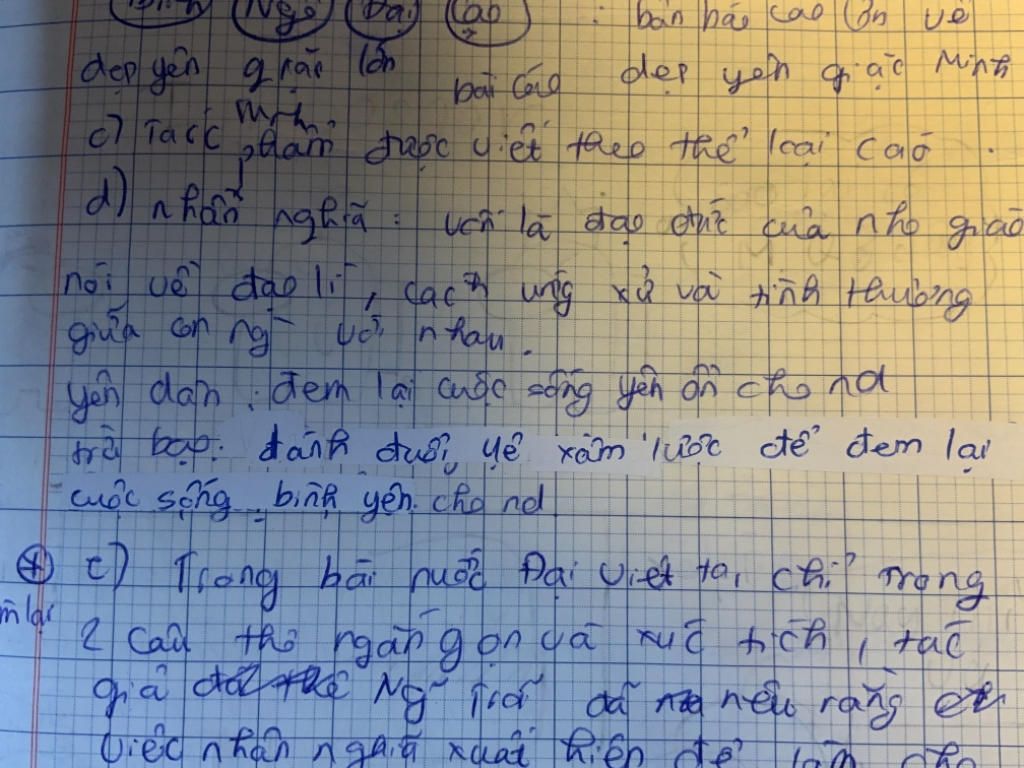 Bình Ngô Đại Cáo : bản báo cáo lớn về
dẹp yên giặc lớn bài cáo dẹp yên giặc Minh
Minh
c) Tacc phẩm được viết theo thể loại cáo .
d) nhân nghĩa : vốn là đạo đức của nho giáo
nói về đạo lí , cách ứng xử và tình thương
giữa con ng với nhau .
yên dân : đem lại cuộc sống yên ổn cho nd
trừ bạo : đánh đuổi, xâm lược để đem lại
cuộc sống bình yên cho nd
e) Trong bài nước Đại Việt ta, chỉ trong
2 câu thơ ngắn gọn và xúc tích , tác
giả Ng Trãi đã nêu rằng
việc nhân nghĩa xuất hiện để làm cho